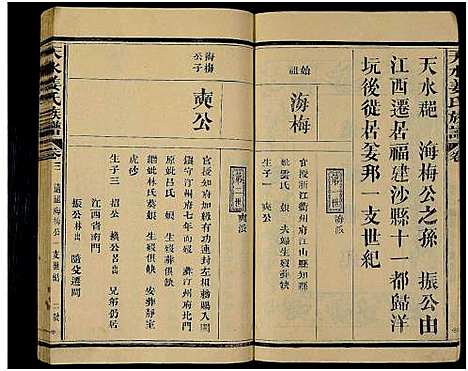 天水姜氏族譜
天水郡 海梅公之孫 振公由
江西遷居福建沙縣十一都歸洋
坑後徙居姜邦一支世紀
始祖
海梅
第一世
官授浙江衢州府江山縣知縣
妣雲氏 娘 夫婦生歿俱缺
生子一 奭公
海梅公子
奭公
第二世
官授
如府加級有功連封左相榜賜入閩
汀州府七年而歿 葬汀州府北門
原妣呂氏 娘 生歿俱缺
繼妣林氏 娘 生歿俱缺 安葬靜室
虎砂
生子三 招公 兄弟仍居
江西省南門
振公 遷閩
天水姜氏族譜